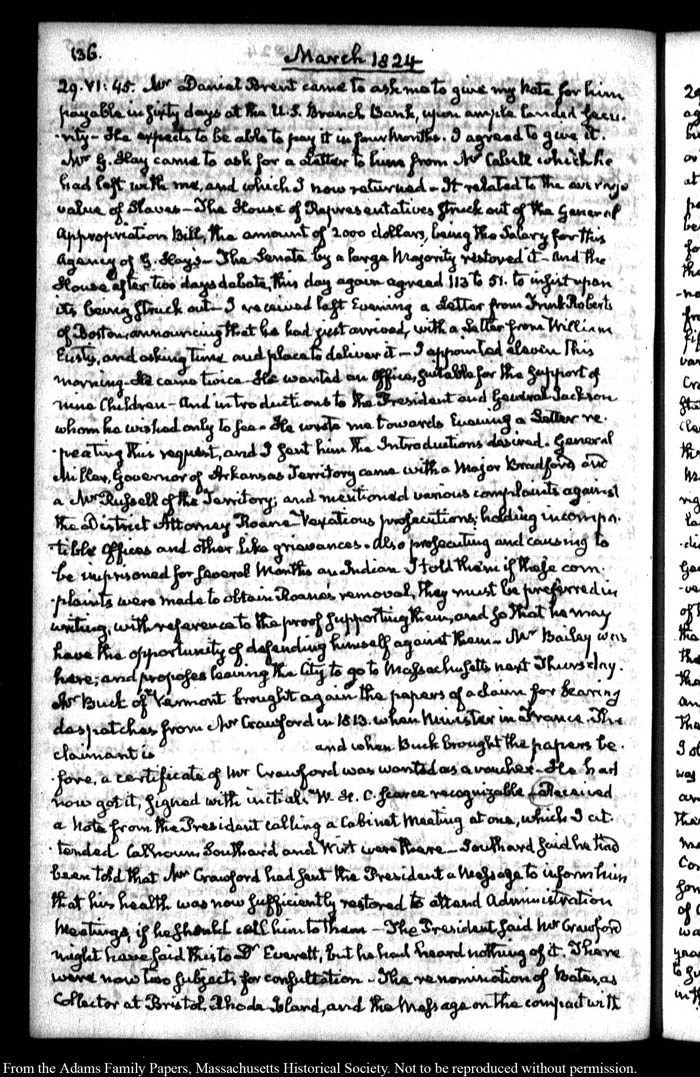 136.
March 1824
29. VI: 45. Mr Daniel Brent came to ask me to give my Note for him
payable in sixty days at the U.S. Branch Bank, upon ample landed secu-
-rity— He expects to be able to pay it in four months. I agreed to give it.
Mr G. Hay came to ask for a Letter to him from Mr Cabell which he
had left with me, and which I now returned— It related to the average
value of Slaves— The House of Representatives struck out of the General
Appropriation Bill, the amount of 2000 dollars, being the Salary for this
Agency of G. Hays— The Senate by a large Majority restored it— and the
House after two days debate, this day again agreed 113 to 51. to insist upon
its being struck out— I received last Evening a Letter from Roberts
of Boston, announcing that he had just arrived, with a Letter from William
Eustis, and asking time and place to deliver it— I appointed eleven this
morning— He came twice— He wanted an Office, suitable for the support of
nine Children— And introductions to the President and General Jackson
whom he wished only to see— He wrote me towards Evening a Letter re-
-peating this request, and I sent him the Introductions desired. General
Miller, Governor of Arkansas Territory came with a Major Bradford, and
a Mr Russell of the Territory; and mentioned various complaints against
the District Attorney Roane— Vexatious prosecutions; holding incompa-
-tible Offices and other like grievances. also prosecuting and causing to
be imprisoned for several Months an Indian I told them if these com-
-plaints were made to obtain Roane's removal, they must be preferred in
writing, with reference to the proof supporting them, and so that he may
have the opportunity of defending himself against them— Mr Bailey was
here; and proposes leaving the City to go to Massachusetts next Thursday.
Mr Buck of Vermont brought again the papers of a claim for bearing
despatches from Mr Crawford in 1813. when Minister in France. The
claimant is and when Buck brought the papers be-
-fore, a certificate of Mr Crawford was wanted as a voucher— He had
now got it, signed with initials W. H. C. scarce recognizable— Received
a Note from the President calling a Cabinet Meeting at one, which I at-
-tended Calhoun, Southard and Wirt were there— Southard said he had
been told that Mr Crawford had sent the President a Message to inform him
that his health was now sufficiently restored to attend Administration
Meetings, if he should call him to them— The President said Mr Crawford
might have said this to Dr Everett, but he had heard nothing of it. There
were now two subjects for consultation— The renomination of Bates, as
Collector at Bristol, Rhode Island, and the Message on the compact with
From the Adams Family Papers, Massachusetts Historical Society. Not to be reproduced without permission.